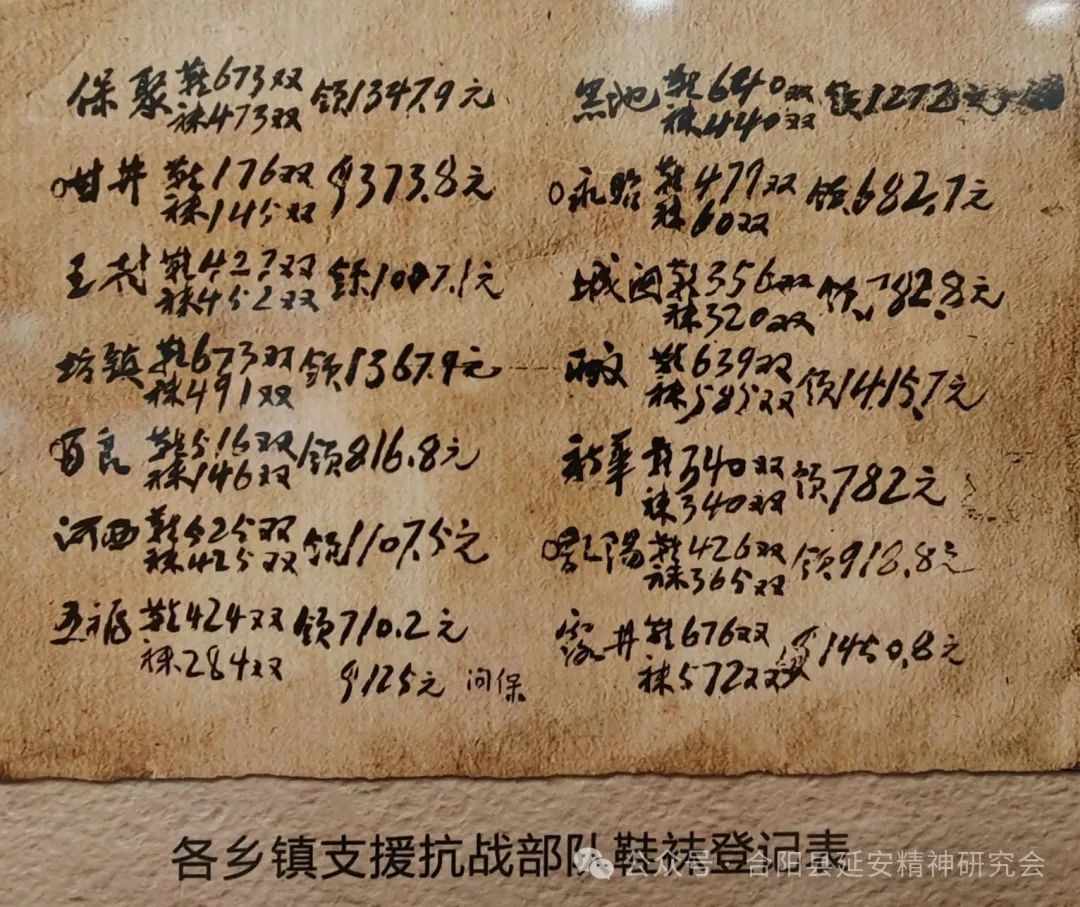 保聚 鞋673双 领1347.9元
袜473双
甘井 鞋176双 领373.8元
袜145双
王村 鞋427双
袜452双
坊镇 鞋673双 领1367.9元
袜491双
百良 鞋516双 领816.8元
袜146双
河西 鞋525双 领1107.5元
袜425双
鞋424双 领710.2元
袜284双
领125元 问保
黑池 鞋640双 领1272元
袜440双
鞋479双 领682.7元
袜60双
城関 鞋356双 领782.8元
袜320双
鞋639双 领1415.7元
袜585双
新華 鞋340双 领782元
袜340双
陽 鞋426双
袜365双
露井 鞋676双 领1450.8元
袜572双
各乡镇支援抗战部队鞋袜登记表
公众号 · 合阳县延安精神研究会